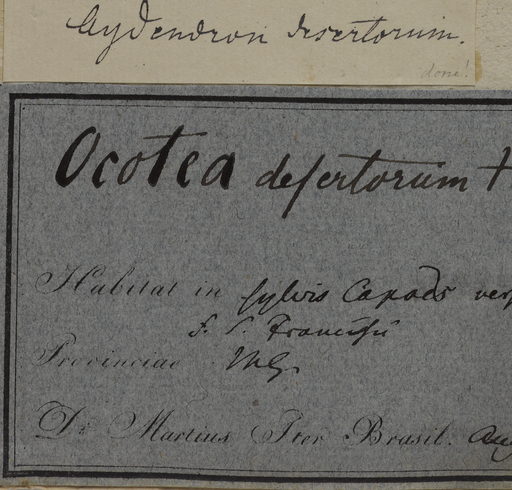 Aydendron desertorum.
done!
Ocotea desertorum
Habitat in sylvis Capoës
Provinciae MG.
Dr. Martius Iter Brasil. Aug